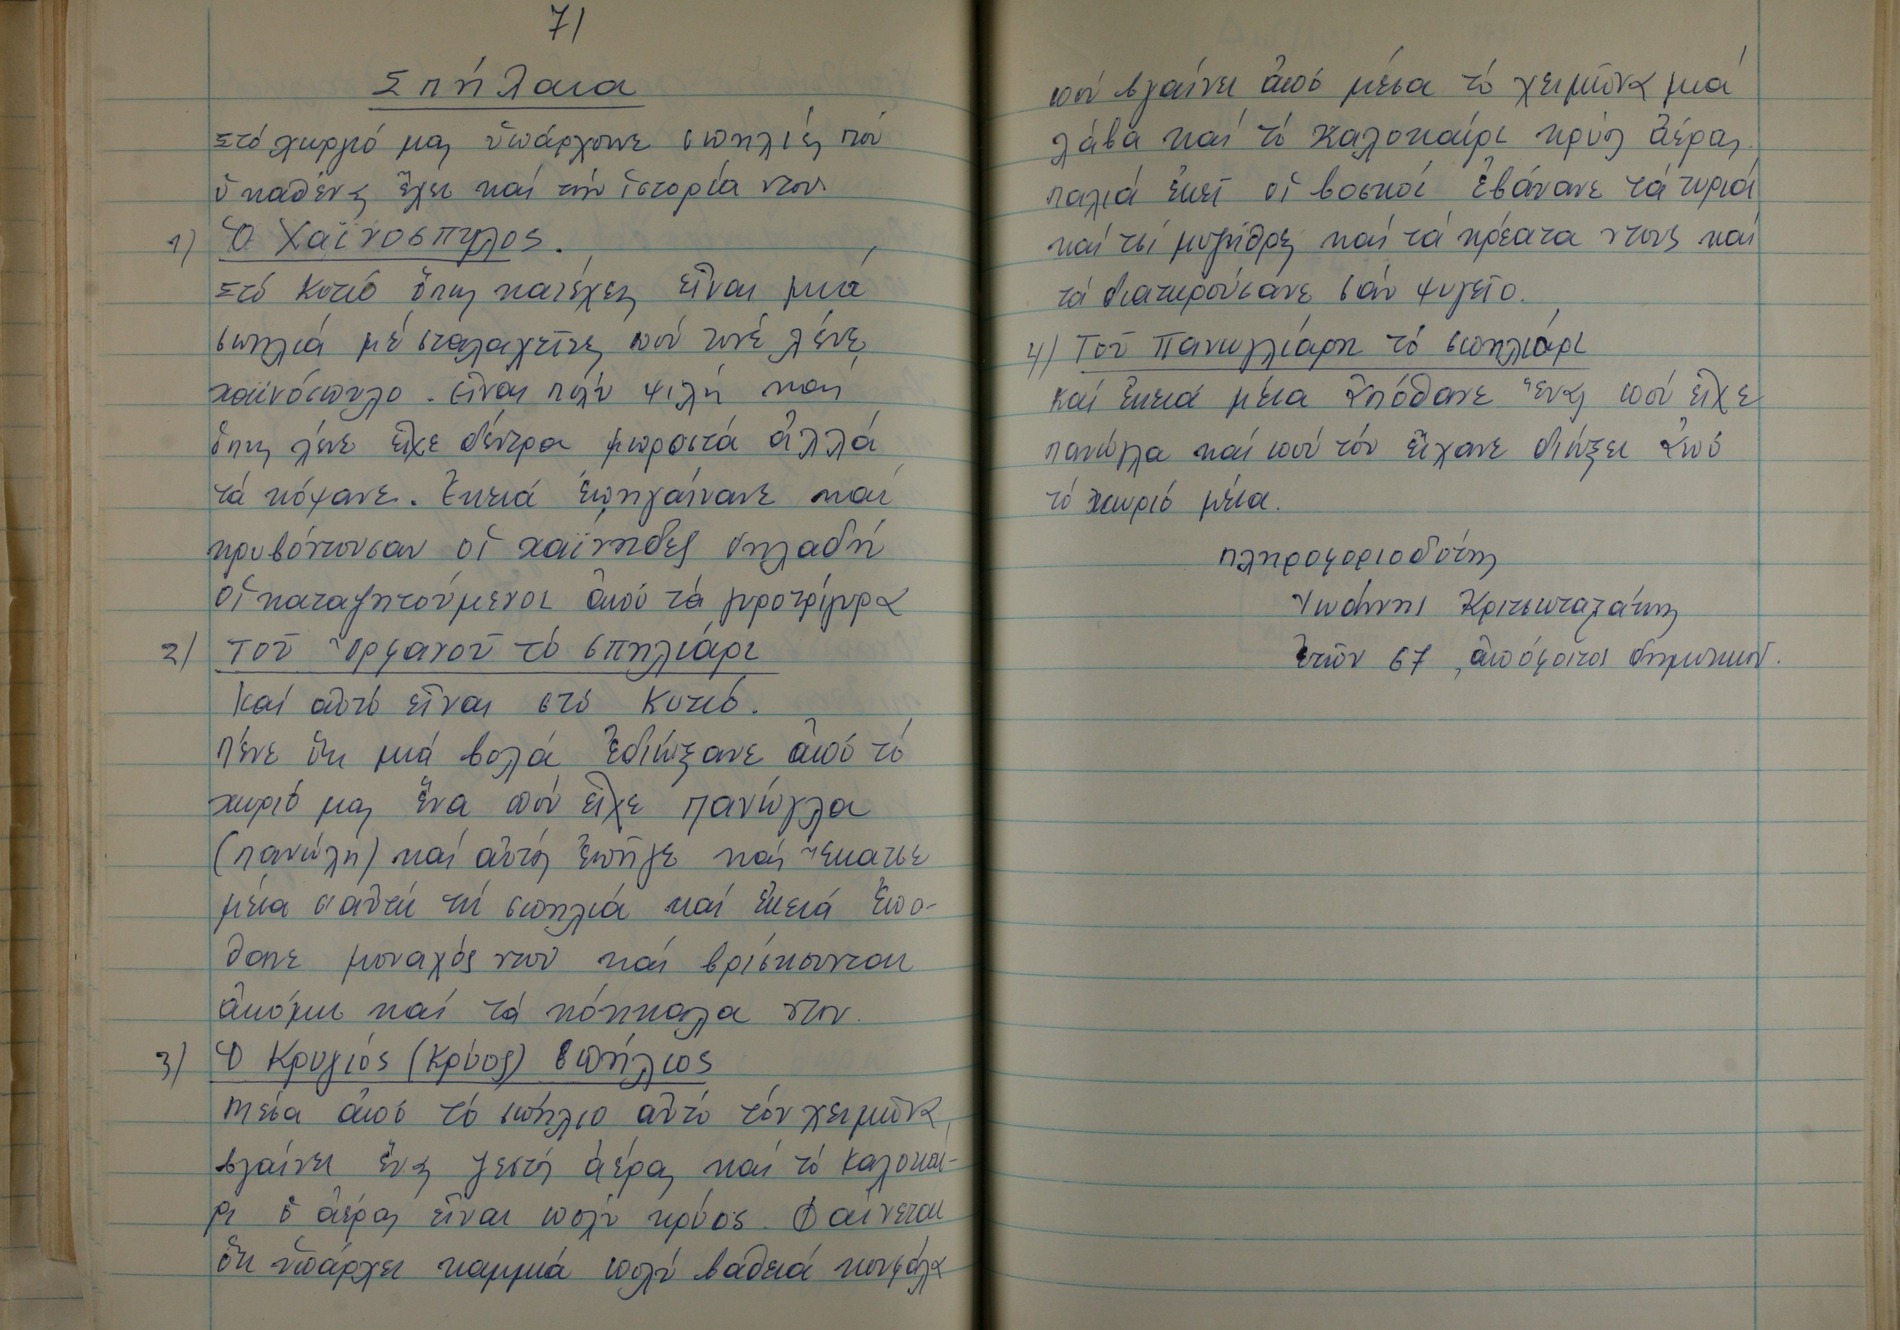 71
Σπήλαια
Στό χωριό μας ὑπάρχουνε σπηλιές πού
ὁ καθένας ἔχει καί τήν ἱστορία ντου.
1) Ὁ Χαϊνόσπηλος.
Στό Κυτιό ὅπως κατέχεις εἶναι μιά
σπηλιά μέ σταλαχτῖτες πού τονέ λένε
χαϊνόσπηλο. Εἶναι πολύ ψηλή καί
ὅπως λένε εἶχε δέντρα μπροστά ἀλλά
τά κόψανε. Ἐκειά ἐπηγαίνανε καί
κρυβόντουσαν οἱ χαΐνηδες δηλαδή
οἱ καταζητούμενοι ἀπό τά γυροτρίγυρα
2) Τοῦ Ὀρφανοῦ τό σπηλιάρι
Καί αὐτό εἶναι στό Κυτιό.
Λένε ὅτι μιά βολά ἐδιώξανε ἀπό τό
χωριό μας ἕνα πού εἶχε πανώγλα
(πανώλη) καί αὐτός ἐπῆγε καί ἔκατσε
μέσα σ' αὐτή τή σπηλιά καί ἐκειά ἐπό-
θανε μοναχός ντου καί βρίσκουνται
ἀκόμη καί τά κόκκαλα ντου.
3) Ὁ Κρυγιός (Κρύος) Σπήλιος
Μέσα ἀπό τό σπήλιο αὐτό τόν χειμῶνα
βγαίνει ἕνας ζεστός ἀέρας καί τό καλοκαί-
ρι ὁ ἀέρας εἶναι πολύ κρύος. Φαίνεται
ὅτι ὑπάρχει καμμιά πολύ βαθειά κουφάλα
πού βγαίνει ἀπό μέσα τό χειμῶνα μιά
λάβα καί τό καλοκαίρι κρύος ἀέρας.
Παλιά ἐκεῖ οἱ βοσκοί ἐβάνανε τά τυριά
καί τσί μυζήθρες καί τά κρέατα ντους καί
τά διατηρούσανε σάν ψυγεῖο.
4) Τοῦ Πανωγλιάρη τό σπηλιάρι
Καί ἐκειά μέσα ἀπόθανε ἕνας πού εἶχε
πανώγλα καί πού τόν εἴχανε διώξει ἀπό
τό χωριό μέσα.
Πληροφοριοδότης
Ἰωάννης Κριτσωταλάκης
ἐτῶν 67, ἀπόφοιτος δημοτικοῦ.